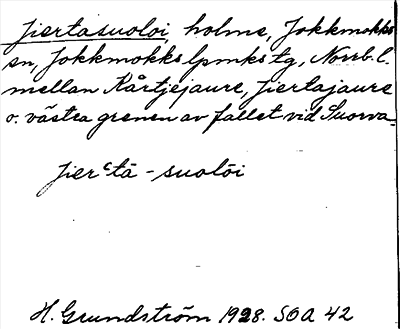 Jiertasuoloi, holme, Jokkmokks
sn, Jokkmokks lpmks tg, Norrb. l.
mellan Kårtjejaure, Jiertajaure
o. västra grenen av fallet vid Suorva.
Jierᶜtā-suolōi
H. Grundström 1928. SOA 42